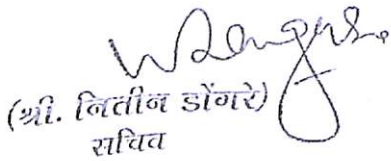 (श्री. नितीन डोंगरे)
सचिव